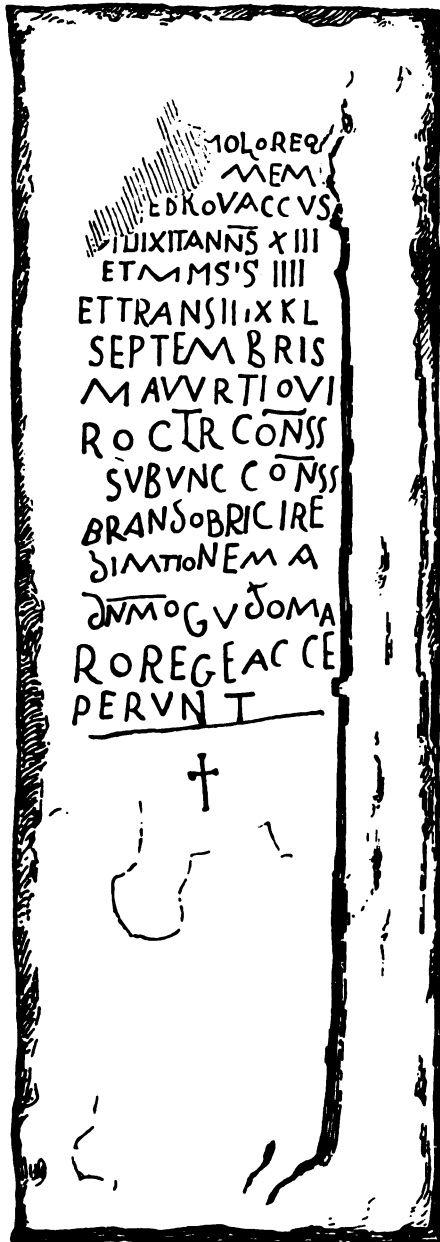 MOLOREQ
MEM
EBROVACCVS
VIXITANNS XIII
ETMMS'S IIII
ETTRANSIIIXKL
SEPTEMBRIS
MAVVRTIOVI
ROCTRCONSS
SVBVNC CONSS
BRANDOBRICIRE
DIMTIONEMA
DNMOGVDOMA
ROREGEACCE
PERVNT